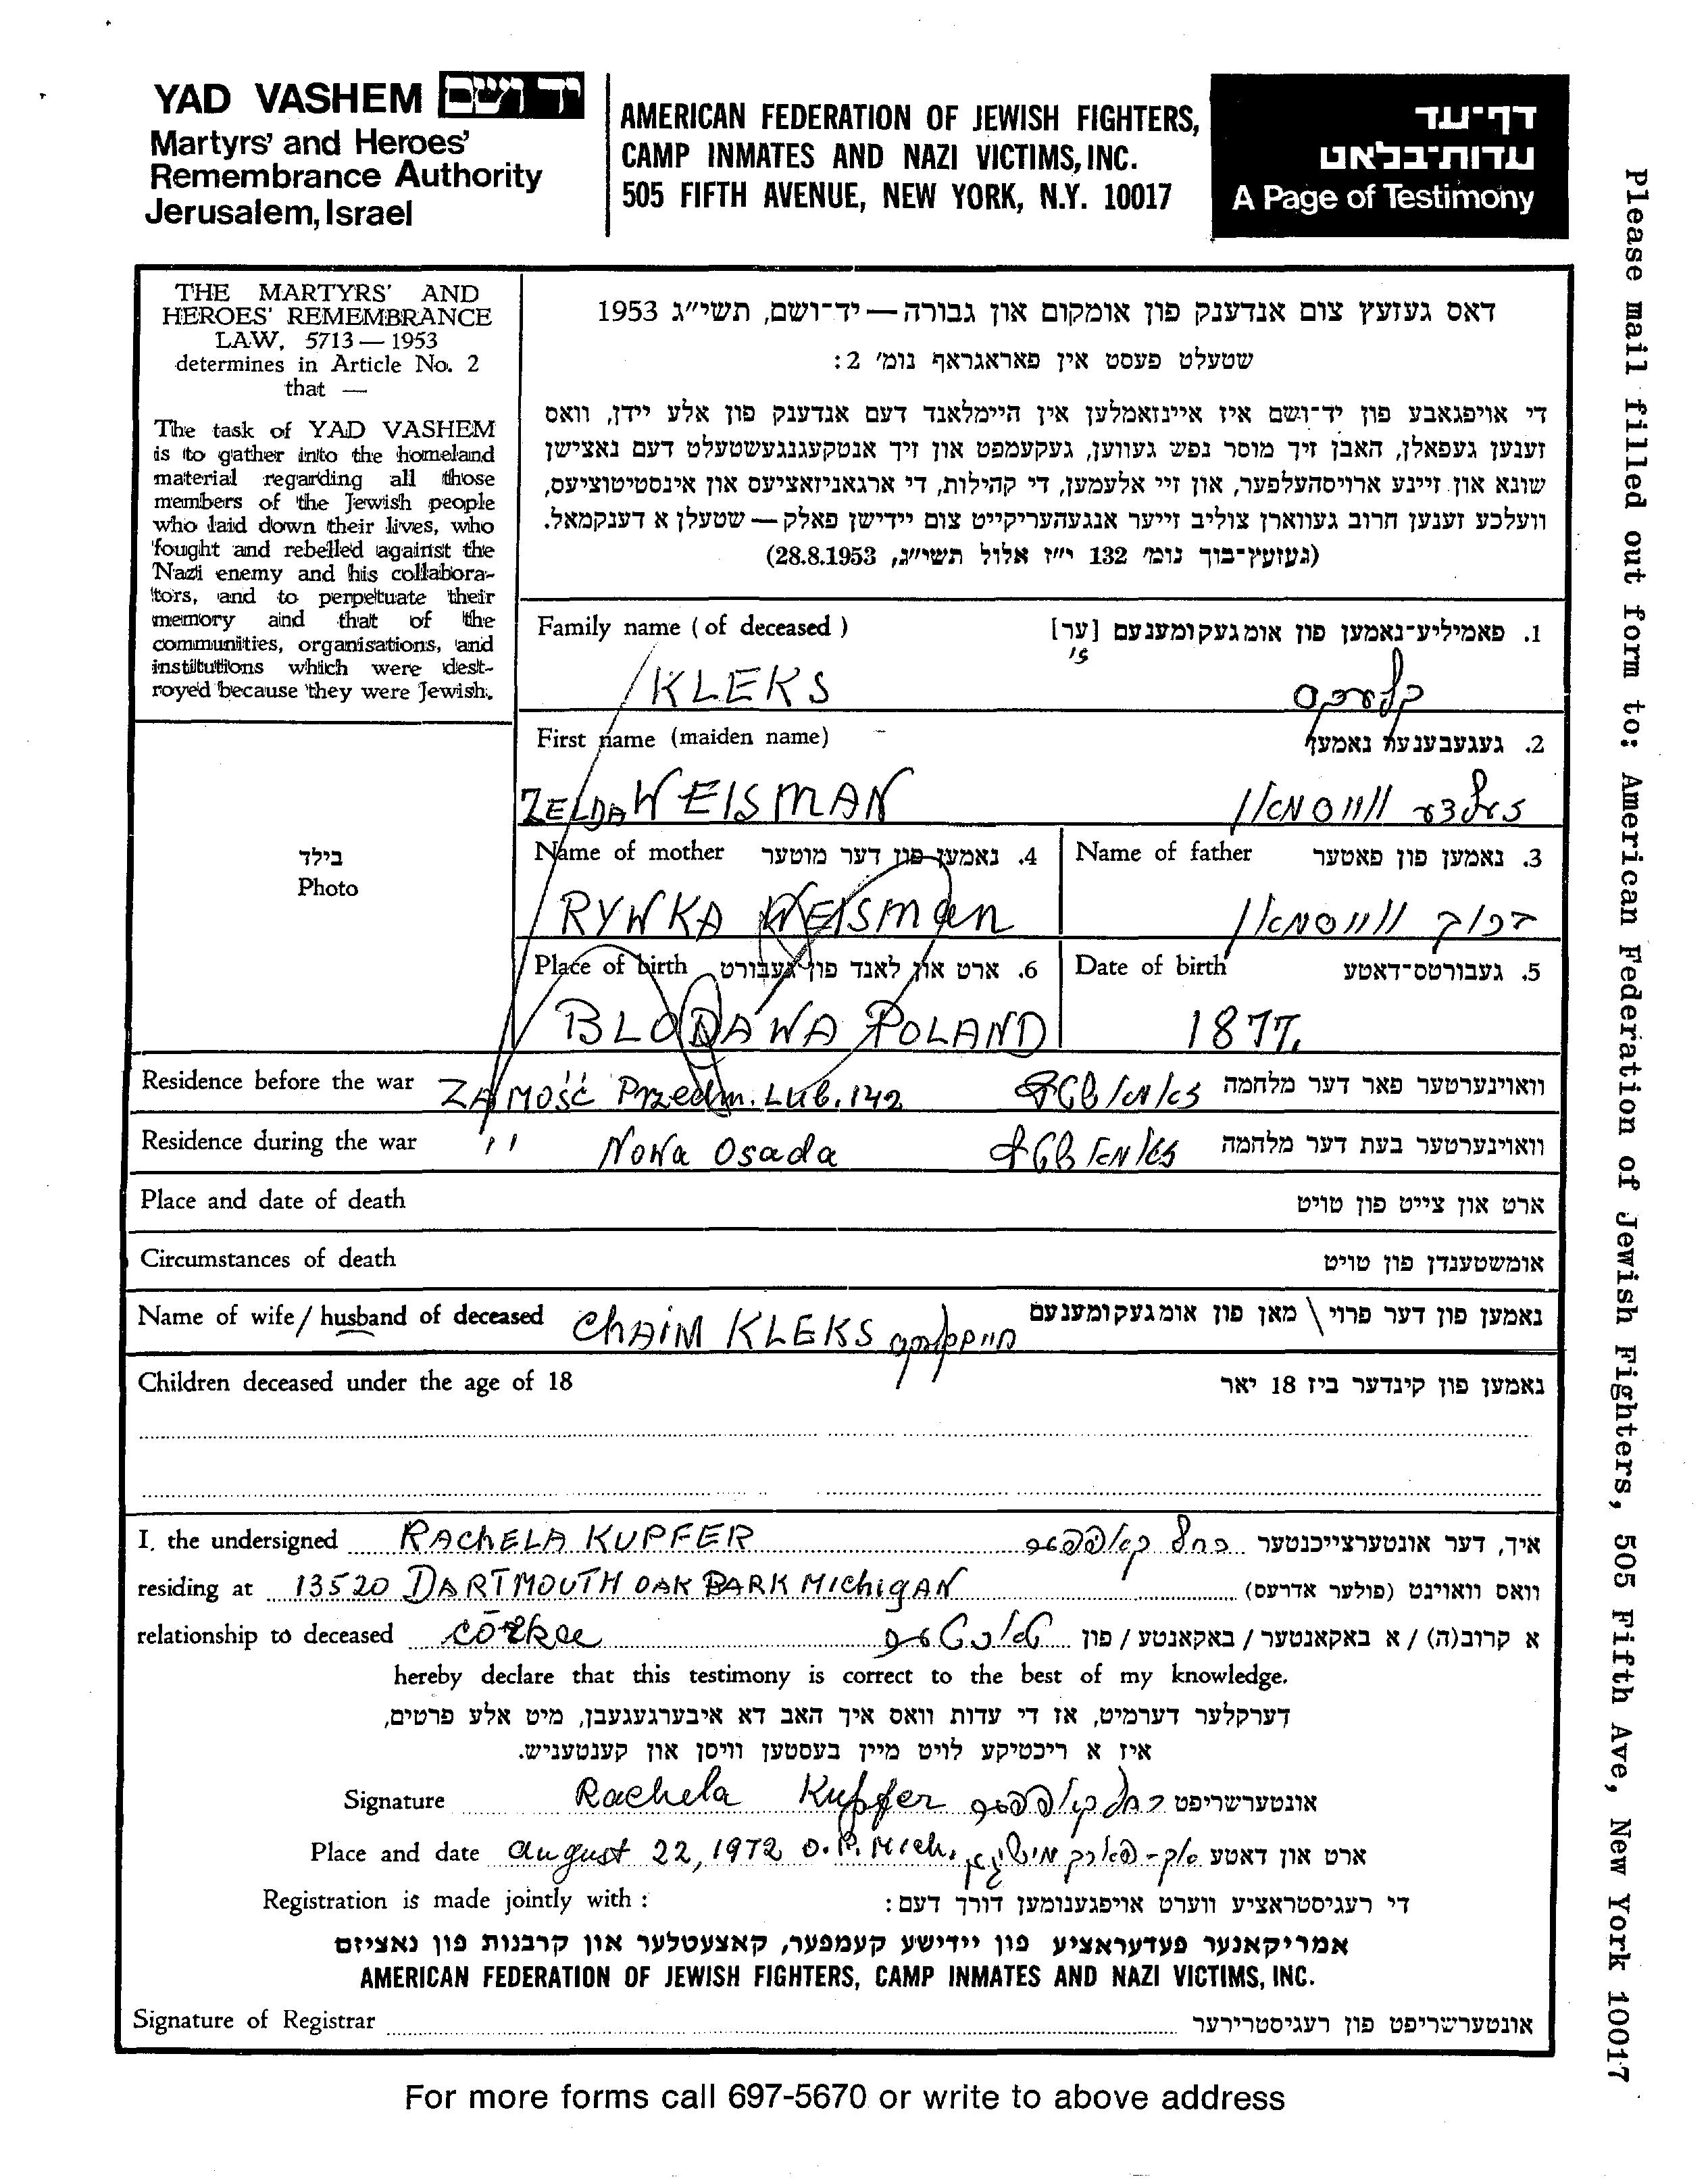 YAD VASHEM יד ושם
Martyrs' and Heroes'
Remembrance Authority
Jerusalem, Israel
AMERICAN FEDERATION OF JEWISH FIGHTERS,
CAMP INMATES AND NAZI VICTIMS, INC.
505 FIFTH AVENUE, NEW YORK, N.Y. 10017
דף־עד
עדות־בלאט
A Page of Testimony
Please mail filled out form to: American Federation of Jewish Fighters, 505 Fifth Ave, New York 10017
THE MARTYRS' AND
HEROES' REMEMBRANCE
LAW, 5713 — 1953
determines in Article No. 2
that —
The task of YAD VASHEM
is to gather into the homeland
material regarding all those
members of the Jewish people
who laid down their lives, who
fought and rebelled against the
Nazi enemy and his collabora-
tors, and to perpetuate their
memory and that of the
communities, organisations, and
institutions which were dest-
royed because they were Jewish.
דאס געזעץ צום אנדענק פון אומקום און גבורה — יד־ושם, תשי"ג 1953
שטעלט פעסט אין פאראגראף נומ' 2:
די אויפגאבע פון יד־ושם איז איינזאמלען אין היימלאנד דעם אנדענק פון אלע יידן, וואס
זענען געפאלן, האבן זיך מוסר נפש געווען, געקעמפט און זיך אנטקעגנגעשטעלט דעם נאצישן
שונא און זיינע ארויסהעלפער, און זיי אלעמען, די קהילות, די ארגאניזאציעס און אינסטיטוציעס,
וועלכע זענען חרוב געווארן צוליב זייער אנגעהעריקייט צום יידישן פאלק — שטעלן א דענקמאל.
(געזעץ־בוך נומ' 132 י"ז אלול תשי"ג, 28.8.1953)
Family name (of deceased) 1. פאמיליע־נאמען פון אומגעקומענעם [ער]
KLEKS קלעקס
First name (maiden name) 2. געגעבענער נאמען
ZELDA WEISMAN זעלדע ווייסמאן
Name of mother 4. נאמען פון דער מוטער
RYWKA WEISMAN
Name of father 3. נאמען פון פאטער
ווייסמאן
Place of birth 6. ארט און לאנד פון געבורט
BLODAWA POLAND
Date of birth 5. געבורטס־דאטע
1877.
בילד
Photo
Residence before the war ZAMOŚĆ Przedm. Lub. 142 וואוינערטער פאר דער מלחמה
Residence during the war " Nowa Osada וואוינערטער בעת דער מלחמה
Place and date of death ארט און צייט פון טויט
Circumstances of death אומשטענדן פון טויט
Name of wife / husband of deceased CHAIM KLEKS נאמען פון דער פרוי \ מאן פון אומגעקומענעם
Children deceased under the age of 18 נאמען פון קינדער ביז 18 יאר
I, the undersigned RACHELA KUPFER רחל קופפער איך, דער אונטערצייכנטער
residing at 13520 DARTMOUTH OAK PARK MICHIGAN וואס וואוינט (פולער אדרעס)
relationship to deceased córka טאכטער א קרוב(ה) / א באקאנטער / באקאנטע / פון
hereby declare that this testimony is correct to the best of my knowledge.
דערקלער דערמיט, אז די עדות וואס איך האב דא איבערגעגעבן, מיט אלע פרטים,
איז א ריכטיקע לויט מיין בעסטען וויסן און קענטעניש.
Signature Rachela Kupfer רחל קופפער אונטערשריפט
Place and date August 22, 1972 O. P. Mich. אק-פארק מישיגאן ארט און דאטע
Registration is made jointly with : די רעגיסטראציע ווערט אויפגענומען דורך דעם:
אמריקאנער פעדעראציע פון יידישע קעמפער, קאצעטלער און קרבנות פון נאציזם
AMERICAN FEDERATION OF JEWISH FIGHTERS, CAMP INMATES AND NAZI VICTIMS, INC.
Signature of Registrar אונטערשריפט פון רעגיסטרירער
For more forms call 697-5670 or write to above address